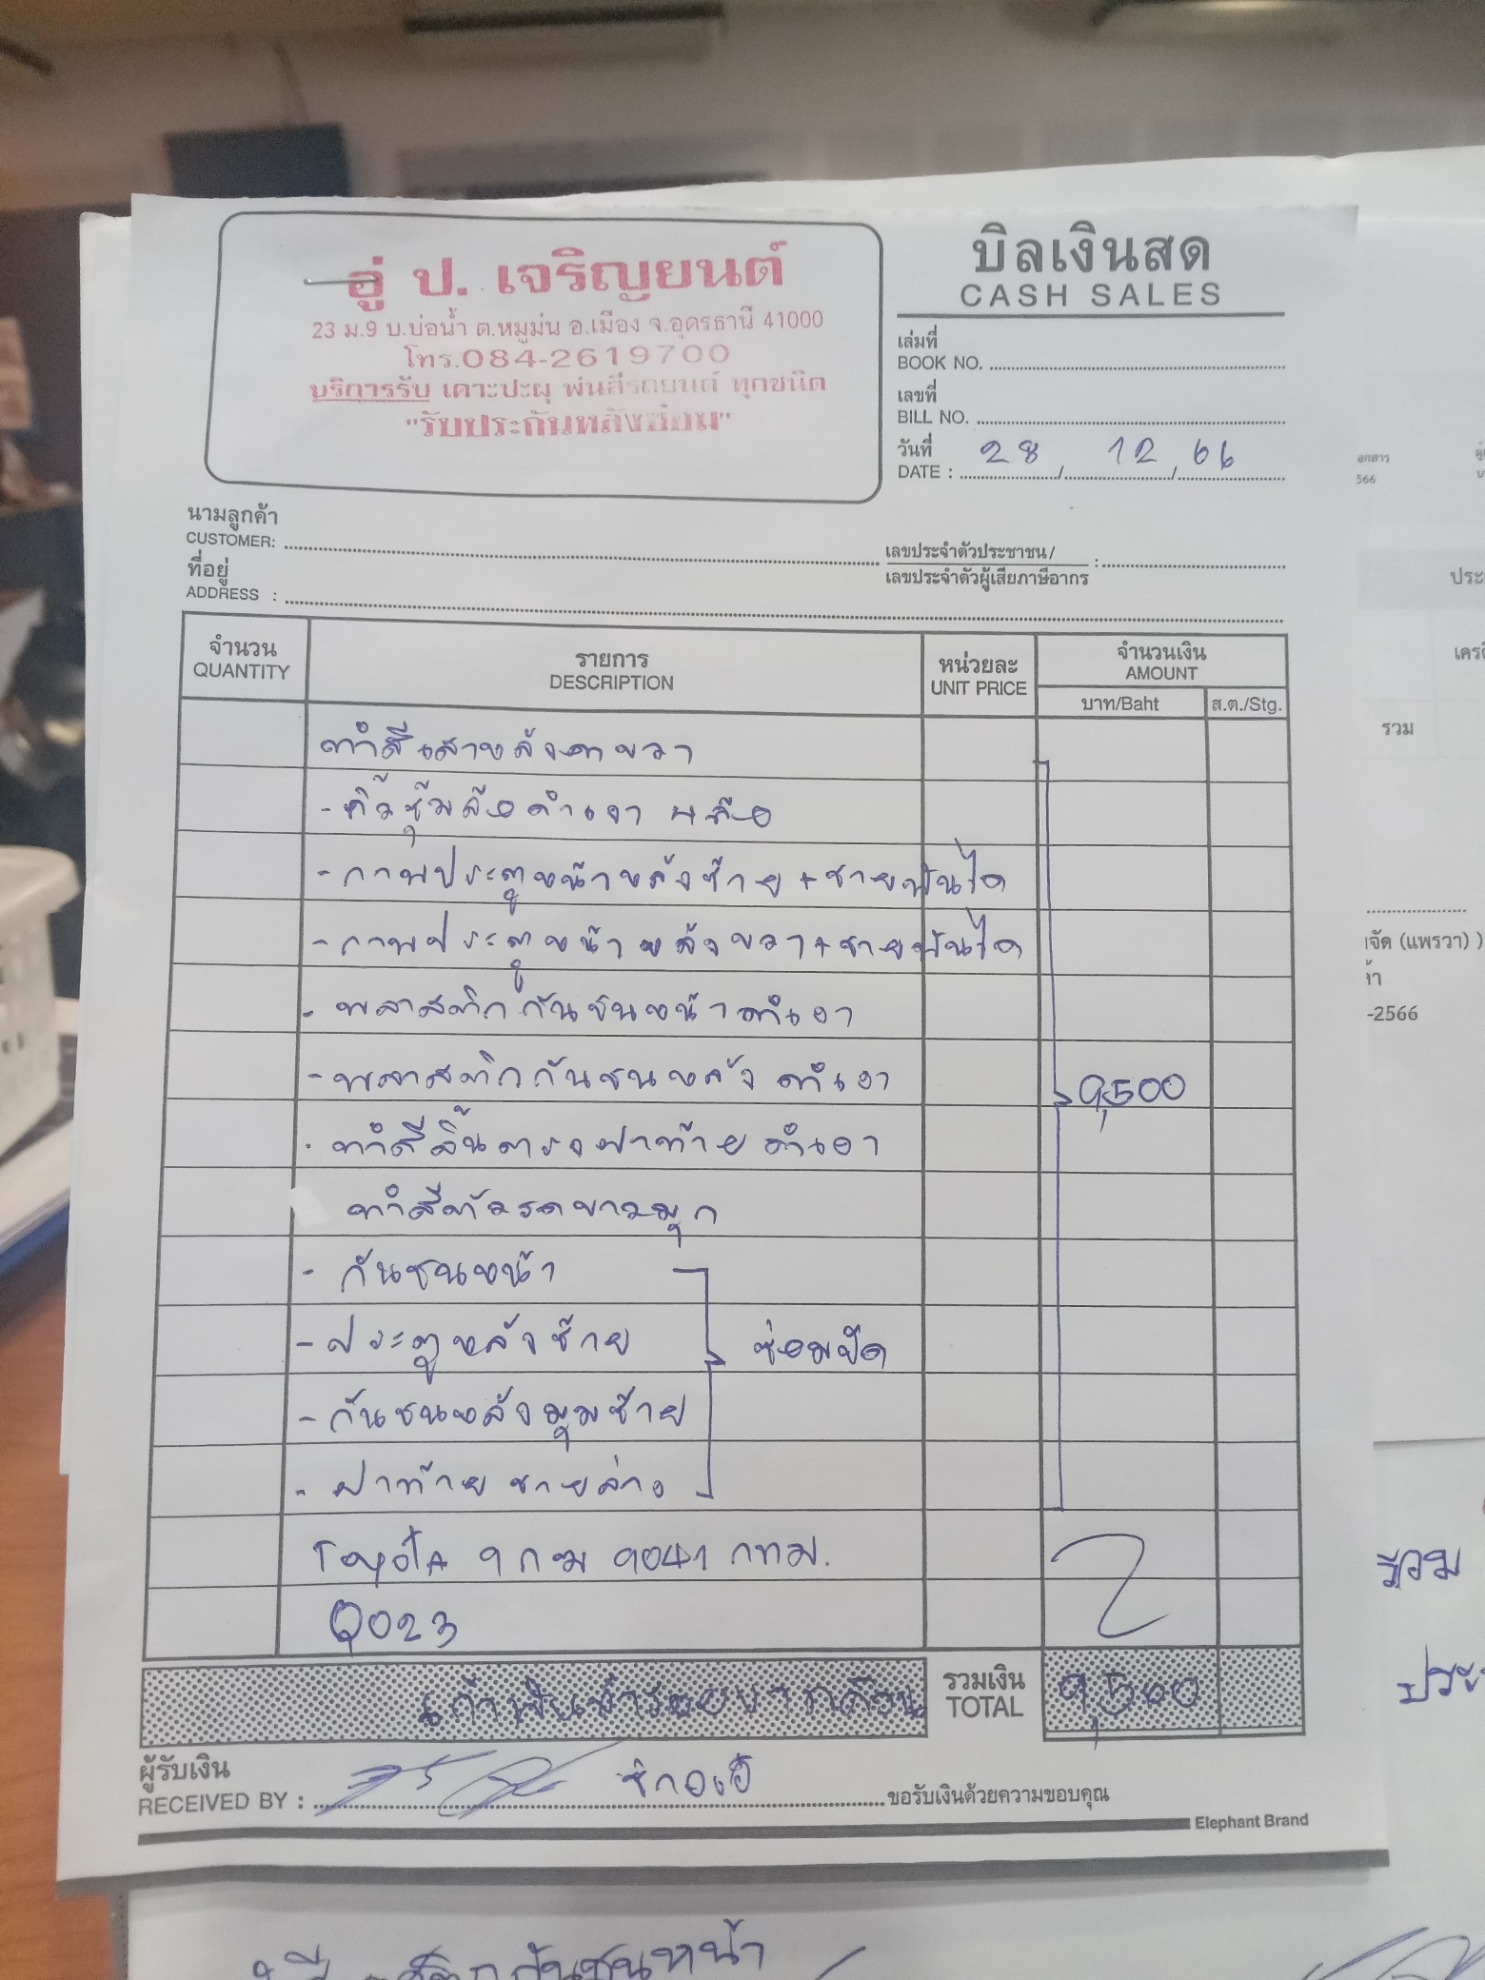 อู่ ป. เจริญยนต์
23 ม.9 บ.บ่อน้ำ ต.หมูม่น อ.เมือง จ.อุดรธานี 41000
โทร.084-2619700
บริการรับ เคาะปะผุ พ่นสีรถยนต์ ทุกชนิด
"รับประกันหลังซ่อม"
บิลเงินสด
CASH SALES
เล่มที่
BOOK NO.
เลขที่
BILL NO.
วันที่
DATE : 28 / 12 / 66
นามลูกค้า
CUSTOMER:
เลขประจำตัวประชาชน/
เลขประจำตัวผู้เสียภาษีอากร :
ที่อยู่
ADDRESS :
จำนวน
QUANTITY
รายการ
DESCRIPTION
หน่วยละ
UNIT PRICE
จำนวนเงิน
AMOUNT
บาท/Baht
ส.ต./Stg.
ทำสีเสาหลังคาขวา
- คิ้วซุ้มล้อดำเงา 4 ล้อ
- กาบประตูหน้าหลังซ้าย + ชายบันได
- กาบประตูหน้าหลังขวา + ชายบันได
- พลาสติกกันชนหน้าดำเงา
- พลาสติกกันชนหลังดำเงา
9,500
- ทำสีลิ้นตรงฝาท้ายดำเงา
ทำสีตัวรถขาวมุก
- กันชนหน้า
- ประตูหลังซ้าย ซ่อมปัด
- กันชนหลังมุมซ้าย
- ฝาท้ายชายล่าง
Toyota 9041 กทม.
Q023
เก้าพันห้าร้อยบาทถ้วน
รวมเงิน
TOTAL
9,500
ผู้รับเงิน
RECEIVED BY :
ขอรับเงินด้วยความขอบคุณ
Elephant Brand
อกสาร
566
ประ
เครดิ
รวม
เจ้ด (แพรวา) )
-2566
รวม
กันชนหน้า